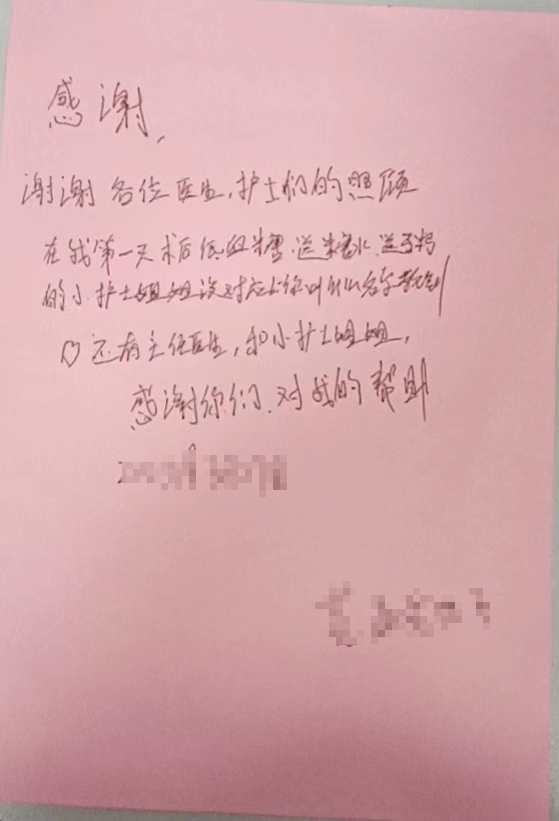 感谢,
谢谢各位医生,护士们的照顾
在我第一天术后低血糖,送糖水,送
的小护士姐姐没对应上你叫什么名字
还有主任医生,和小护士姐姐,
感谢你们,对我的帮助